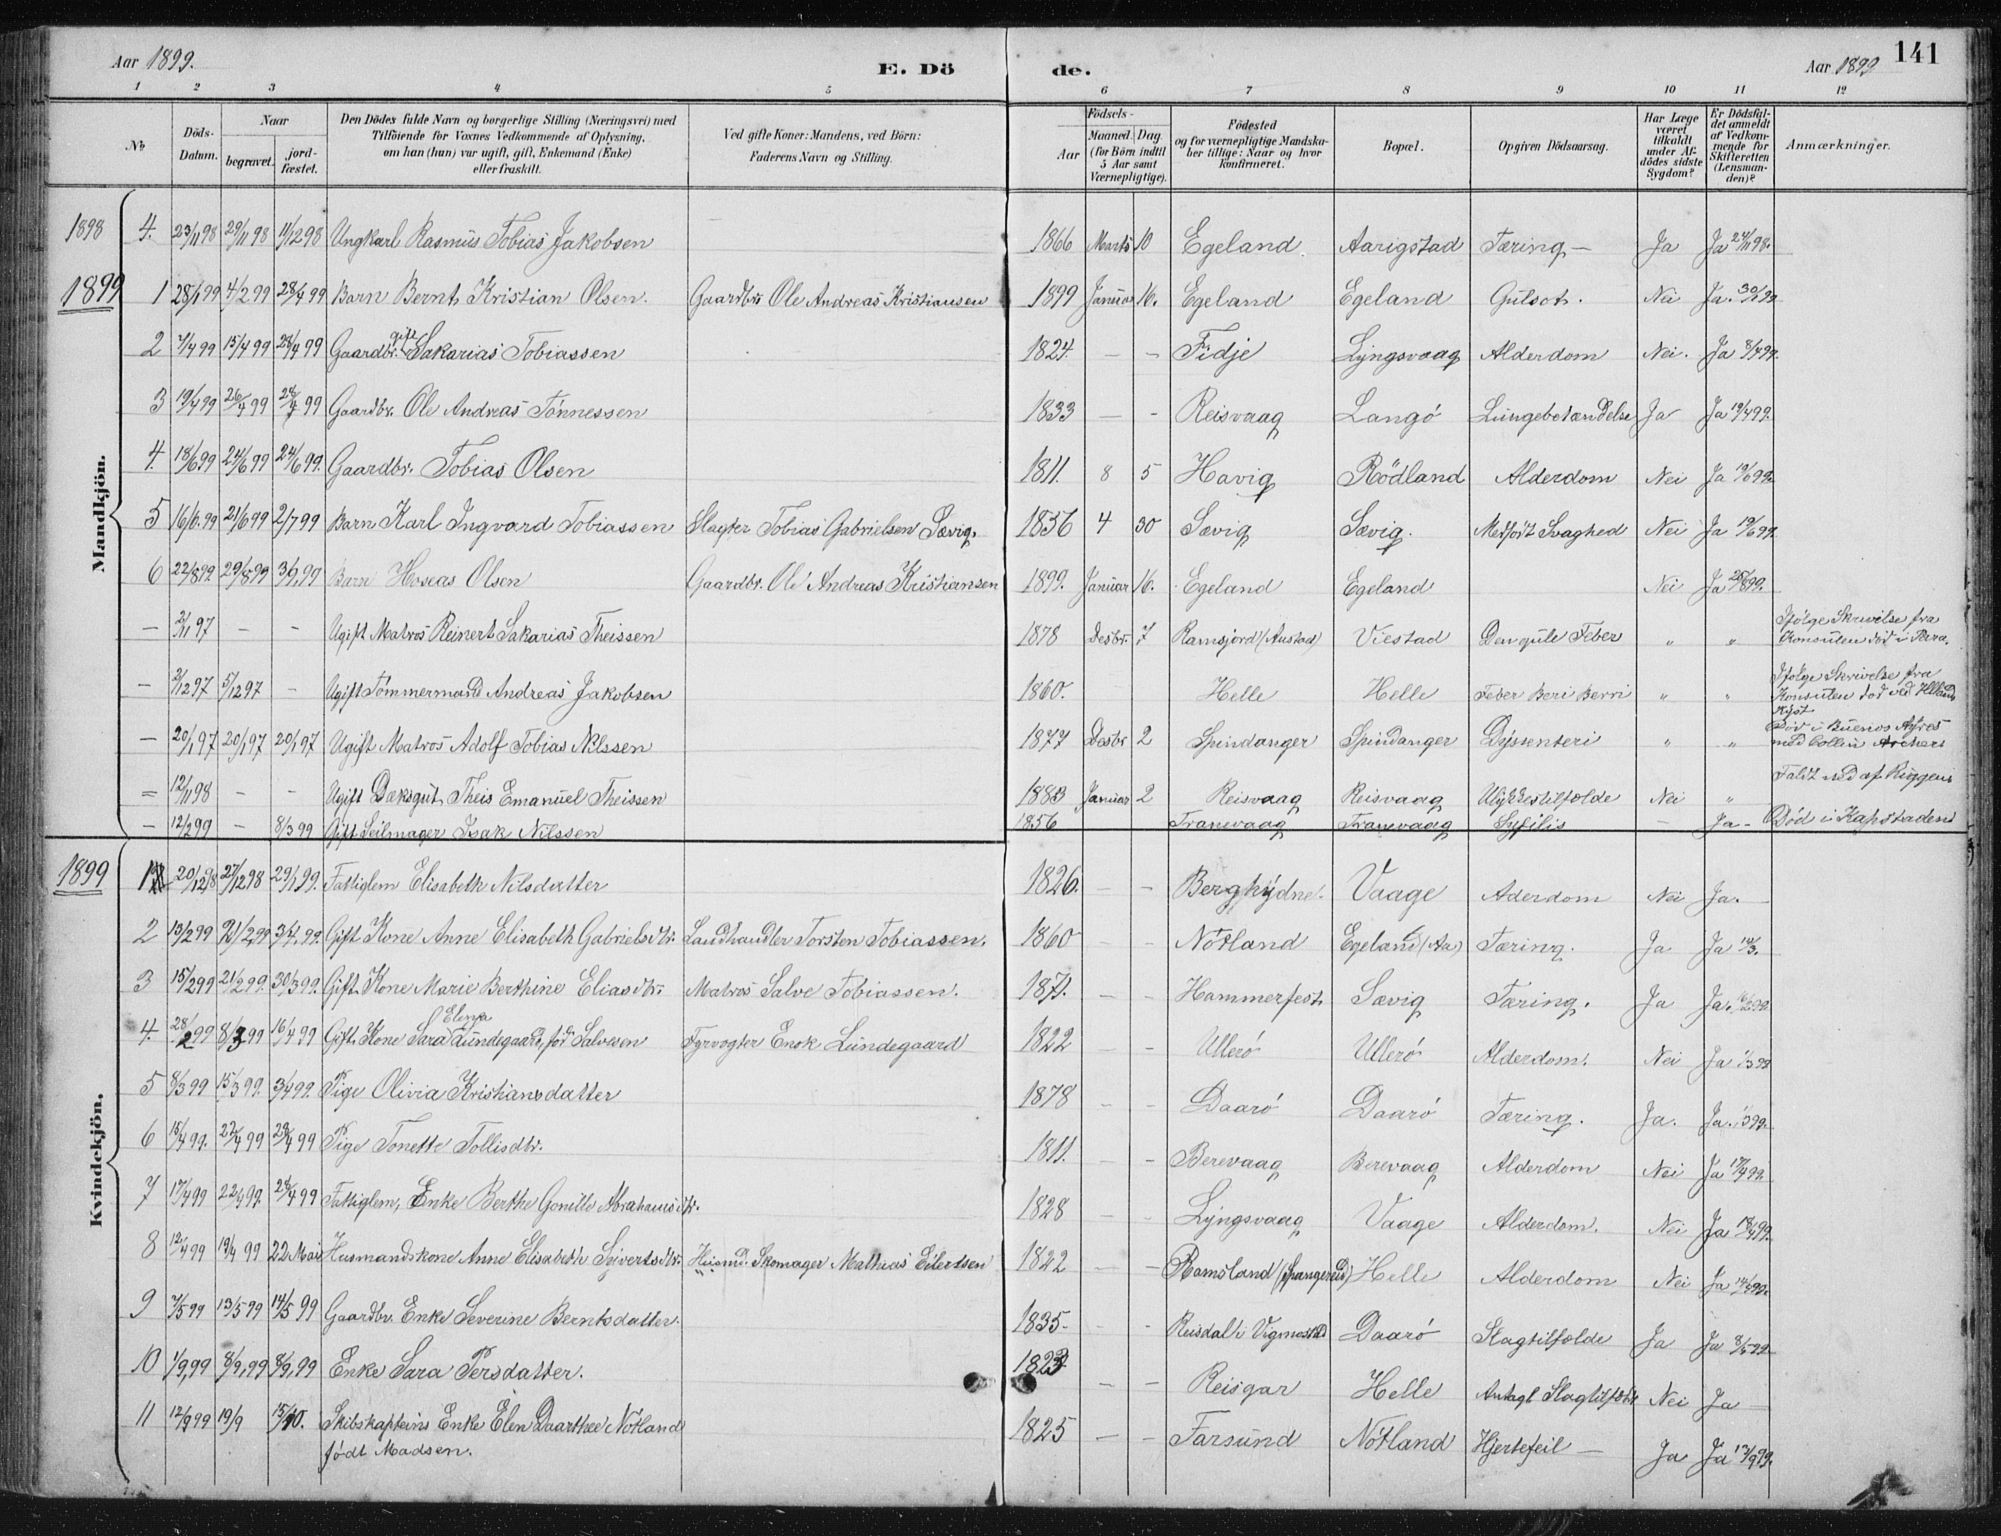 Aar 1899. E. Dö de. Aar 1899 141
1 2 3 4 5 6 7 8 9 10 11 12
No
Döds-Datum.
Naar begravet. jordfæstet.
Den Dödes fulde Navn og borgerlige Stilling (Næringsvei) med
Tilföiende for Voxnes Vedkommende af Oplysning,
om han (hun) var ugift, gift, Enkemand (Enke)
eller fraskilt.
Ved gifte Koner: Mandens, ved Börn:
Faderens Navn og Stilling.
Födsels-
Aar Maaned. Dag.
(for Börn indtil
5 Aar samt
Værnepligtige).
Födested
og for værnepligtige Mandskaber tillige: Naar og hvor
konfirmeret.
Bopæl.
Opgiven Dödsaarsag.
Har Læge været tilkaldt under Afdödes sidste Sygdom?
Er Dödsfaldet anmeldt af Vedkommende for Skifteretten (Lensmanden)?
Anmærkninger.
Mandkjön.
1898 4. 23/11 98 29/11 98 11/12 98 Ungkarl Rasmus Tobias Jakobsen 1866 Marts 10 Egeland Aarigstad Tæring — Ja Ja 24/11 98.
1899 1 28/1 99 4/2 99 28/4 99 Barn Bernt Kristian Olsen. Gaardbr. Ole Andreas Kristiansen 1899 Januar 16. Egeland Egeland Gulsot. Nei Ja. 30/1 99
2 7/4 99 15/4 99 28/4 99 Gaardbr. gift Sakarias Tobiassen 1824. — — Fidje Lyngsvaag Alderdom Nei. Ja 8/4 99.
3 19/4 99 26/4 99 28/4 99 Gaardbr. Ole Andreas Tönnessen 1833 — - Reisvaag Langö Lungebetændelse Ja Ja 19/4 99.
4. 18/6 99 24/6 99 24/6 99. Gaardbr. Tobias Olsen 1811. 8 5 Havig Rödland Alderdom Nei Ja 19/6 99.
5 16/6. 99 21/6 99 2/7 99 Barn Karl Ingvard Tobiassen Slagter Tobias Gabrielsen Sævig. 4 30 Sævig Sævig. Medfödt Svaghed Nei Ja 19/6 99.
6 22/8 99. 29/8 99 99 Barn Hoseas Olsen Gaardbr. Ole Andreas Kristiansen 1899. Januar 16. Egeland Egeland Nei Ja 99.
— 2/11 97 — - Ugift Matros Reinert Sakarias Theissen 1878 Desbr. 7 Ramsjord (Austad) Viestad Den gule Feber " " Ifölge Skrivelse fra
Konsulen död i Para.
— 2/12 97 5/12 97 — Ugift Tömmermand Andreas Jakobsen 1860. Helle Helle Feber Beri Berri " " Ifölge Skrivelse fra
Konsulen död ved
Kyst
— 20/1 97 20/1 97 20/1 97 Ugift Matros Adolf Tobias Nilssen 1877 Desbr 2 Spindanger Spindanger Dyssenteri " " Död i Buenos Ayres
med Collin Archers
= 12/11 98 - - Ugift Dæksgut Theis Emanuel Theissen 1883 Januar 2 Reisvaag Reisvaag Ulykkestilfælde Nei " Faldt ned af Riggen
— 12/2 99 — 8/3 99 Gift Seilmager Isak Nilssen 1856 Tranevaag Tranevaag Syfilis — Ja - Död i Kapstaden
Kvindekjön.
1899 1 20/12 98 27/12 98 29/1 99. Fattiglem Elisabeth Nilsdatter 1826. — — Vaage Aderdom Nei Ja. —
2 13/2 99 21/2 99 3/4 99. Gift Kone Anne Elisabeth Gabrielsdtr. Landhandler Torsten Tobiassen. 1860 — — Nötland Egeland (Aa) Tæring. Ja Ja
3 15/2 99 21/2 99. 30/3 99. Gift Kone Marie Berthine Eliasdtr. Matros Salve Tobiassen. 1871. — — Hammerfest Sævig Tæring. Ja Ja.
4. 28/2 99 8/3 99 16/4 99 Gift Kone Sara Elena Lundegaard, föd Salvesen Fyrvogter Enok Lundegaard 1822 — — Ullerö Ullerö Alderdom. Nei Ja
5 8/3 99 15/3 99. 3/4 99. Pige Olivia Kristiansdatter 1878 — — Daarö Daarö Tæring. Ja. Ja.
6 15/4 99. 22/4 99 28/4 99 Pige Tonette Tollisdtr. 1811. — — Berevaag Berevaag Alderdom Nei Ja 17/4 99.
7 17/4 99 22/4 99. 28/4 99 Fattiglem, Enke Berthe Gonille Abrahamsdtr. 1828 — — Lyngsvaag Vaage Alderdom. Nei Ja 18/4 99.
8 12/4 99 19/4 99 22 Mai Husmandskone Anne Elisabeth Syvertsdtr. Husmd. Skomager Mathias Eilertsen 1822 — — Ramsland (Spangereid) Helle Alderdom Nei Ja 14/4 99.
9 7/5 99 13/5 99 14/5 99 Gaardbr. Enke Severine Berntsdatter. 1835. - - Reisdal i Vigmostad Daarö Slagtilfælde Ja Ja 8/5 99.
10 1/9, 99 8/9, 99 8/9, 99 Enke Sara Persdatter. 1823 — — Reisgar Helle Antagl Slagtilfælde Nei Ja —
11 12/9 99 19/9 15/10. Skibskapteins Enke Elen Daarthee Nötland
födt Madsen. 1825 — — Farsund Nötland Hjertefeil — Ja Ja 13/9 99.